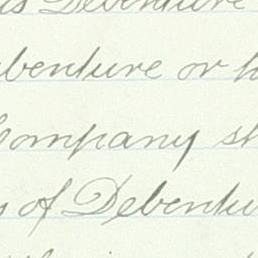 as Debenture
ebenture or h
Company sh
s of Debentu